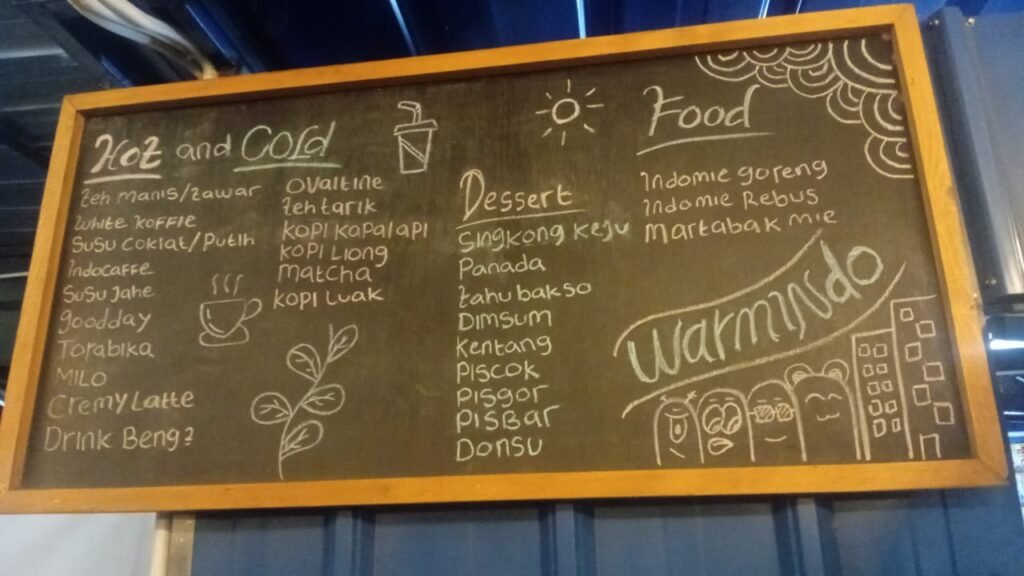 Hot and Cold
teh manis/tawar
White Koffie
Susu Coklat/Putih
Indocaffe
Susu Jahe
goodday
Torabika
MILO
Cremy Latte
Drink Beng2
Ovaltine
teh tarik
Kopi Kapal api
Kopi Liong
Matcha
Kopi Luak
Dessert
Singkong Keju
Panada
tahu bakso
Dimsum
Kentang
Piscok
Pisgor
Pisbar
Donsu
Food
Indomie goreng
Indomie Rebus
Martabak mie
WarmINdo